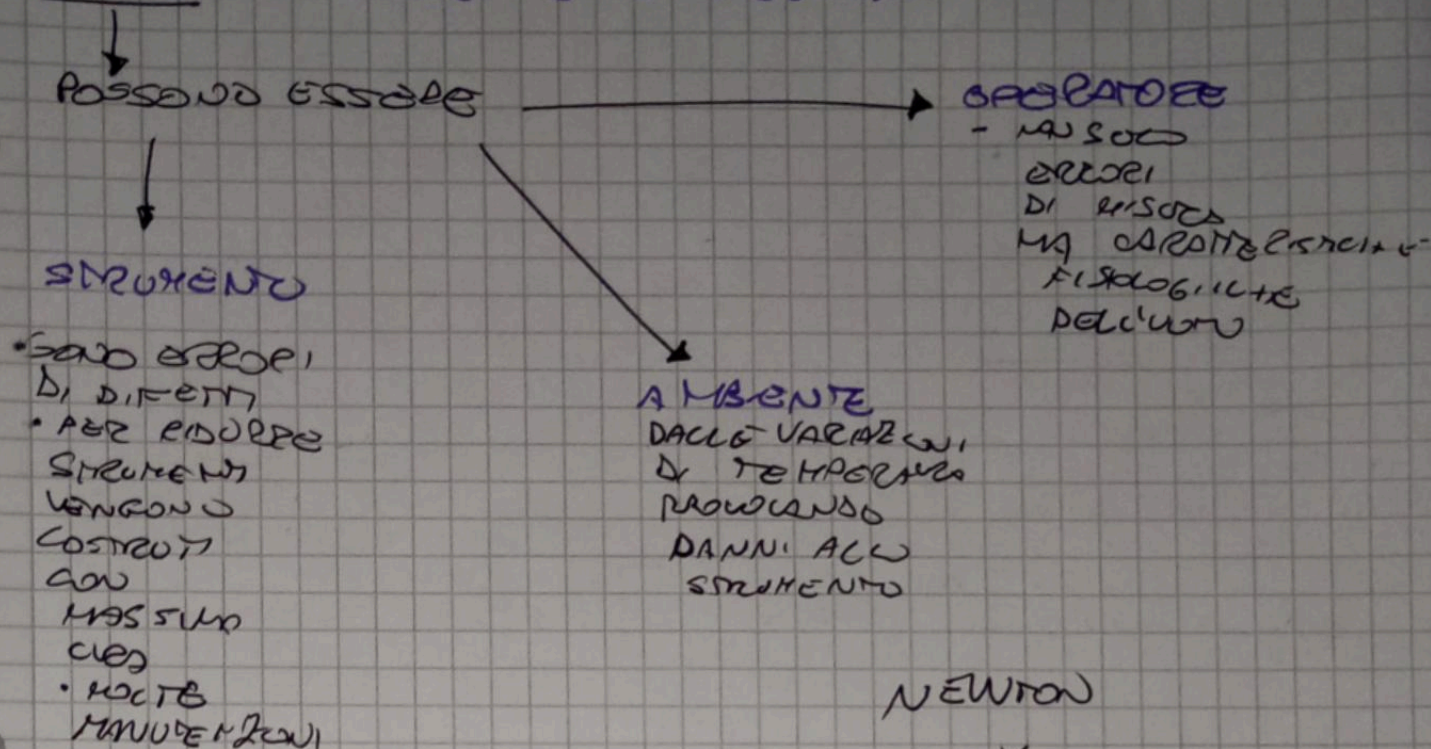 POSSONO ESSERE
OPERATORE
- NON SOLO
ERRORI
DI MISURA
MA CARATTERISTICHE
FISIOLOGICHE
DELL'UOMO
STRUMENTO
• SONO ERRORI
DI DIFETTI
• PER RIDURRE
STRUMENTI
VENGONO
COSTRUITI
CON
MASSIMA
CURA
• MOLTE
MANUTENZIONI
AMBIENTE
DALLE VARIAZIONI
DI TEMPERATURA
PROVOCANDO
DANNI ALLO
STRUMENTO
NEWTON